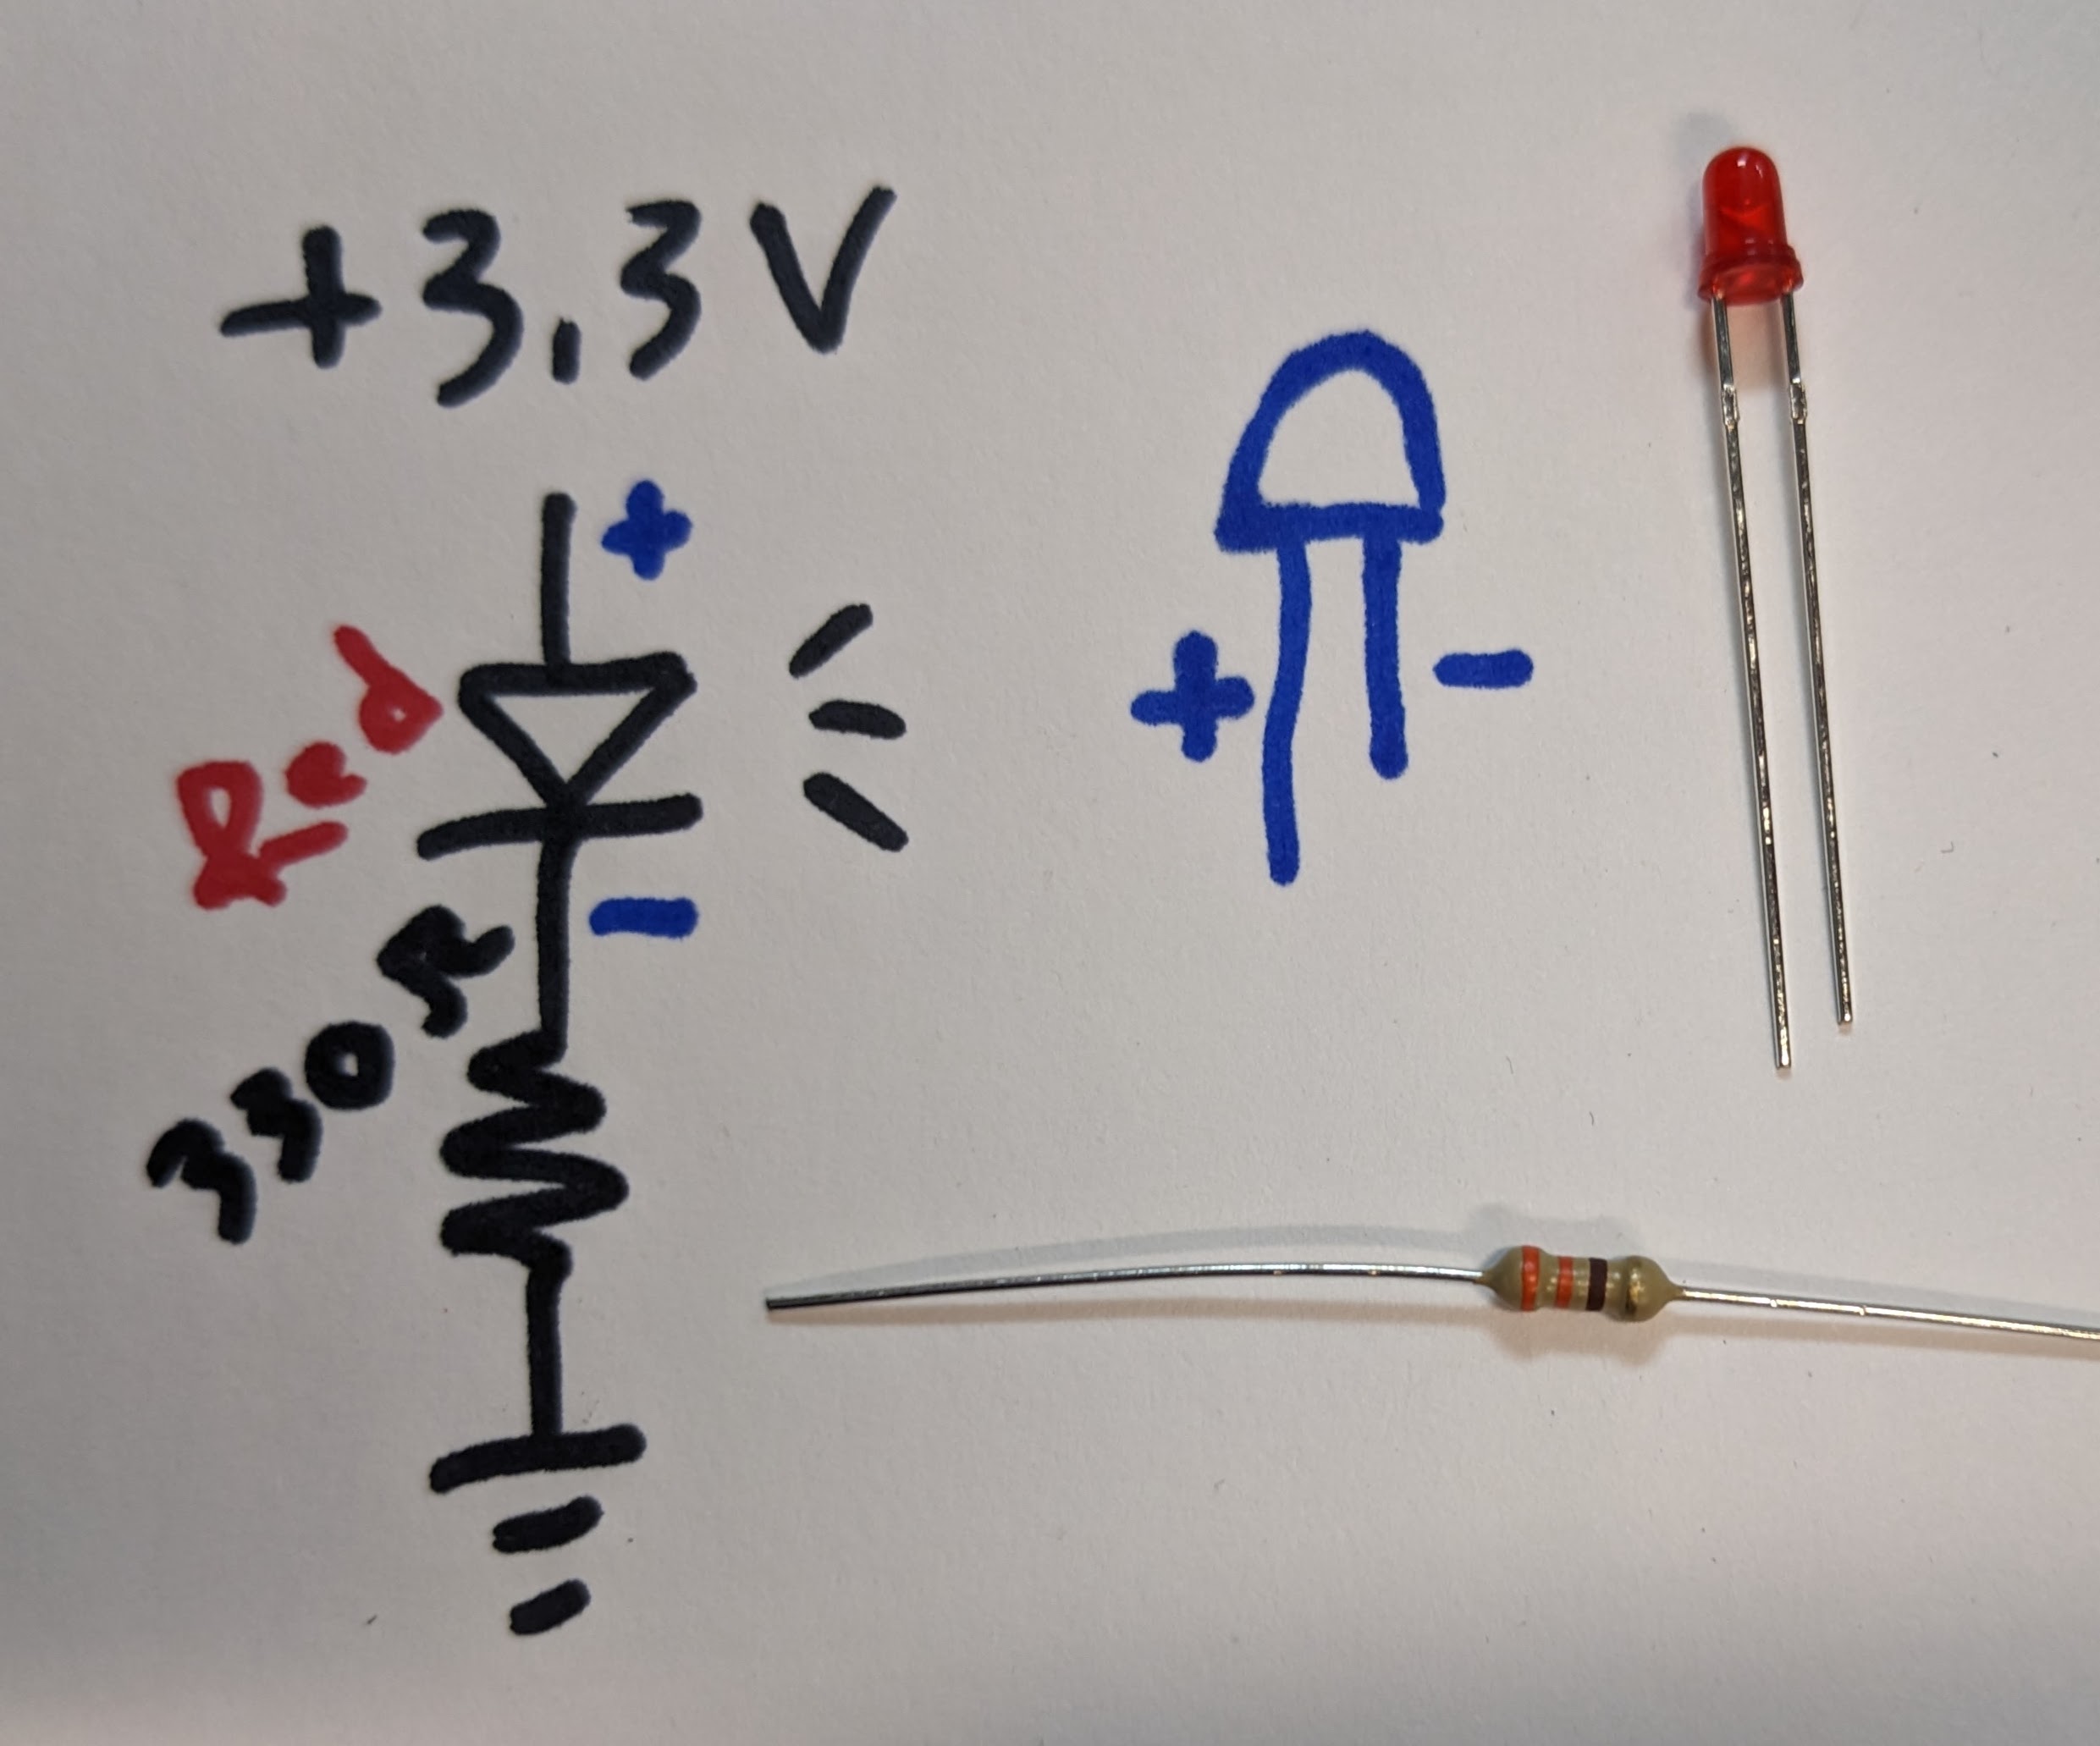 +3.3V
+
Red
-
330Ω
+ -